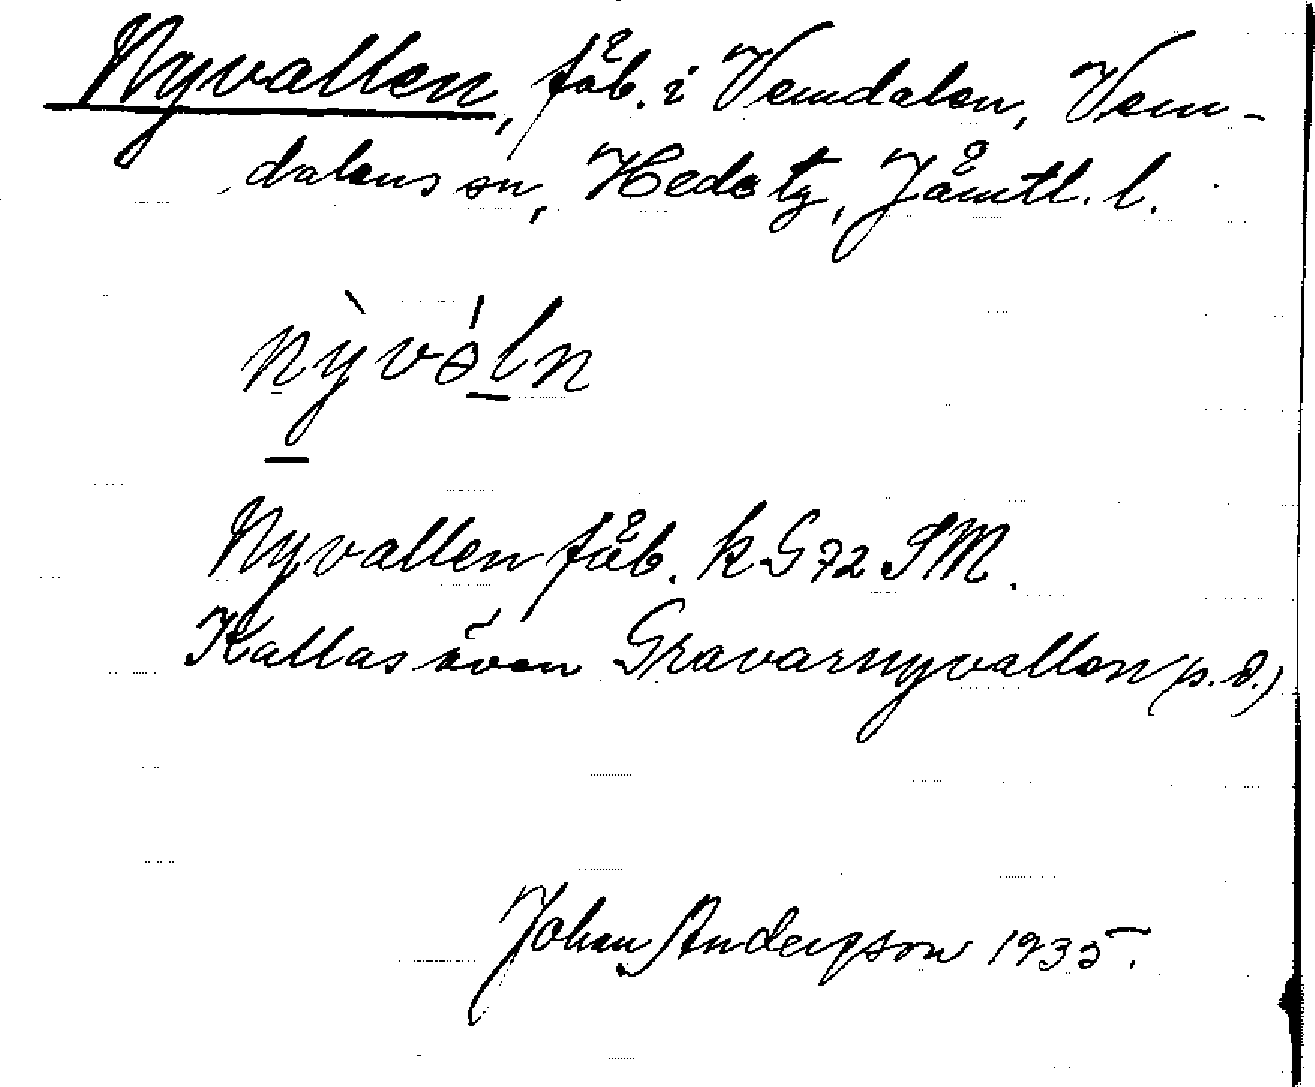 Nyvallen, fäb. i Vemdalen, Vem-
dalens sn, Hede tg, Jämtl. l.
nỳváln
Nyvallen fäb. k G 72 SM.
Kallas även Gravarnyvallen (s. d.)
Johan Anderpson 1935.